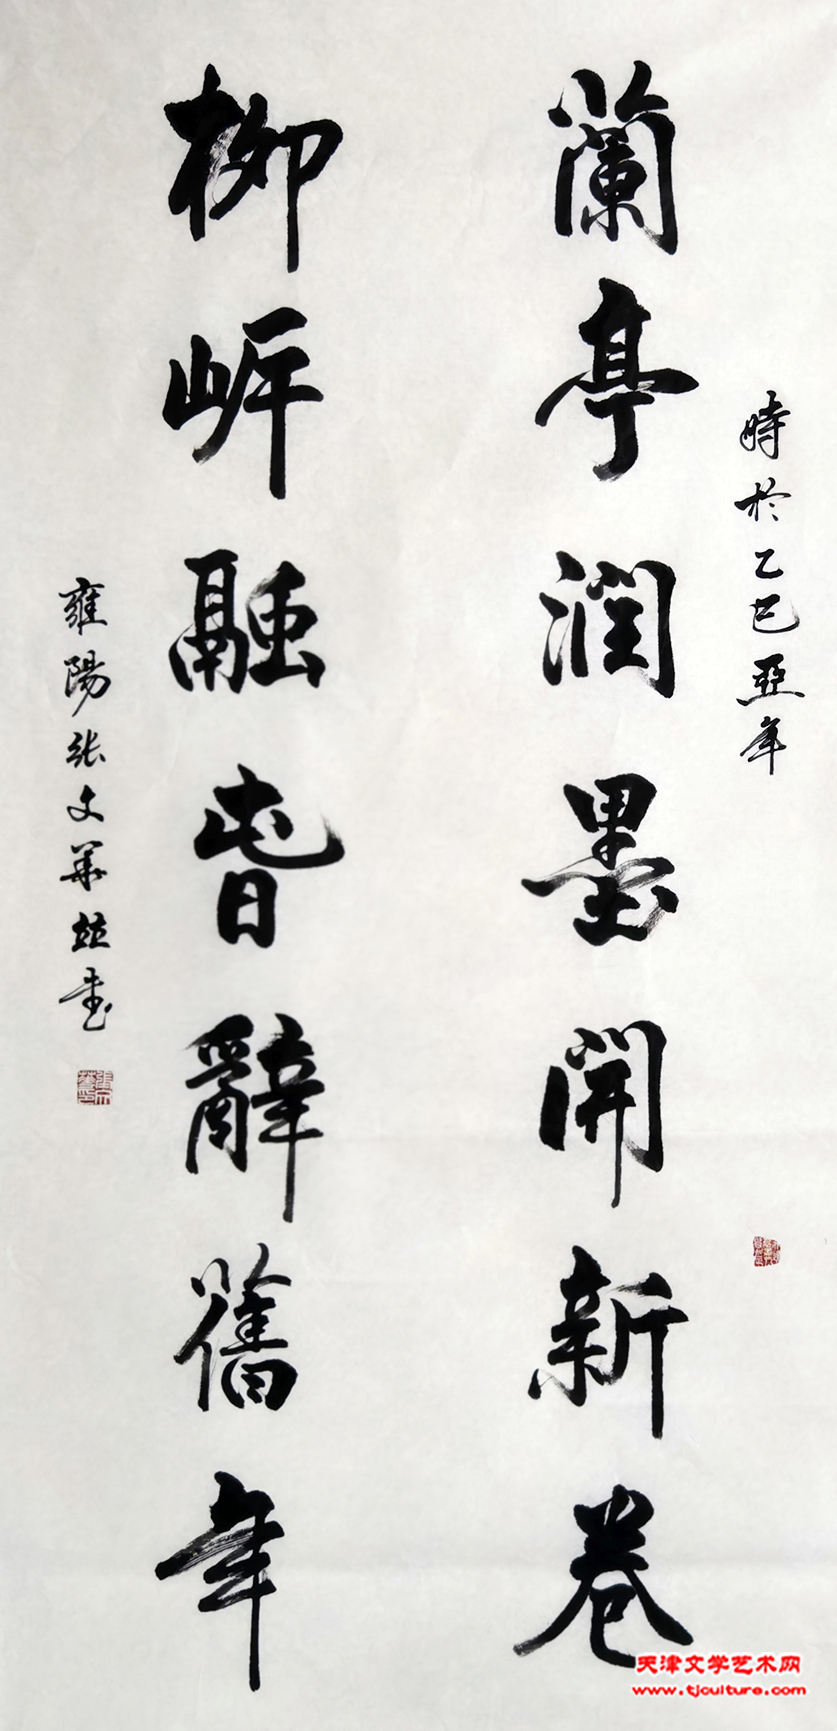 時於乙巳亞年
蘭亭潤墨開新卷
柳岸融旾辭舊年
雍陽张文華並書
天津文学艺术网
www.tjculture.com